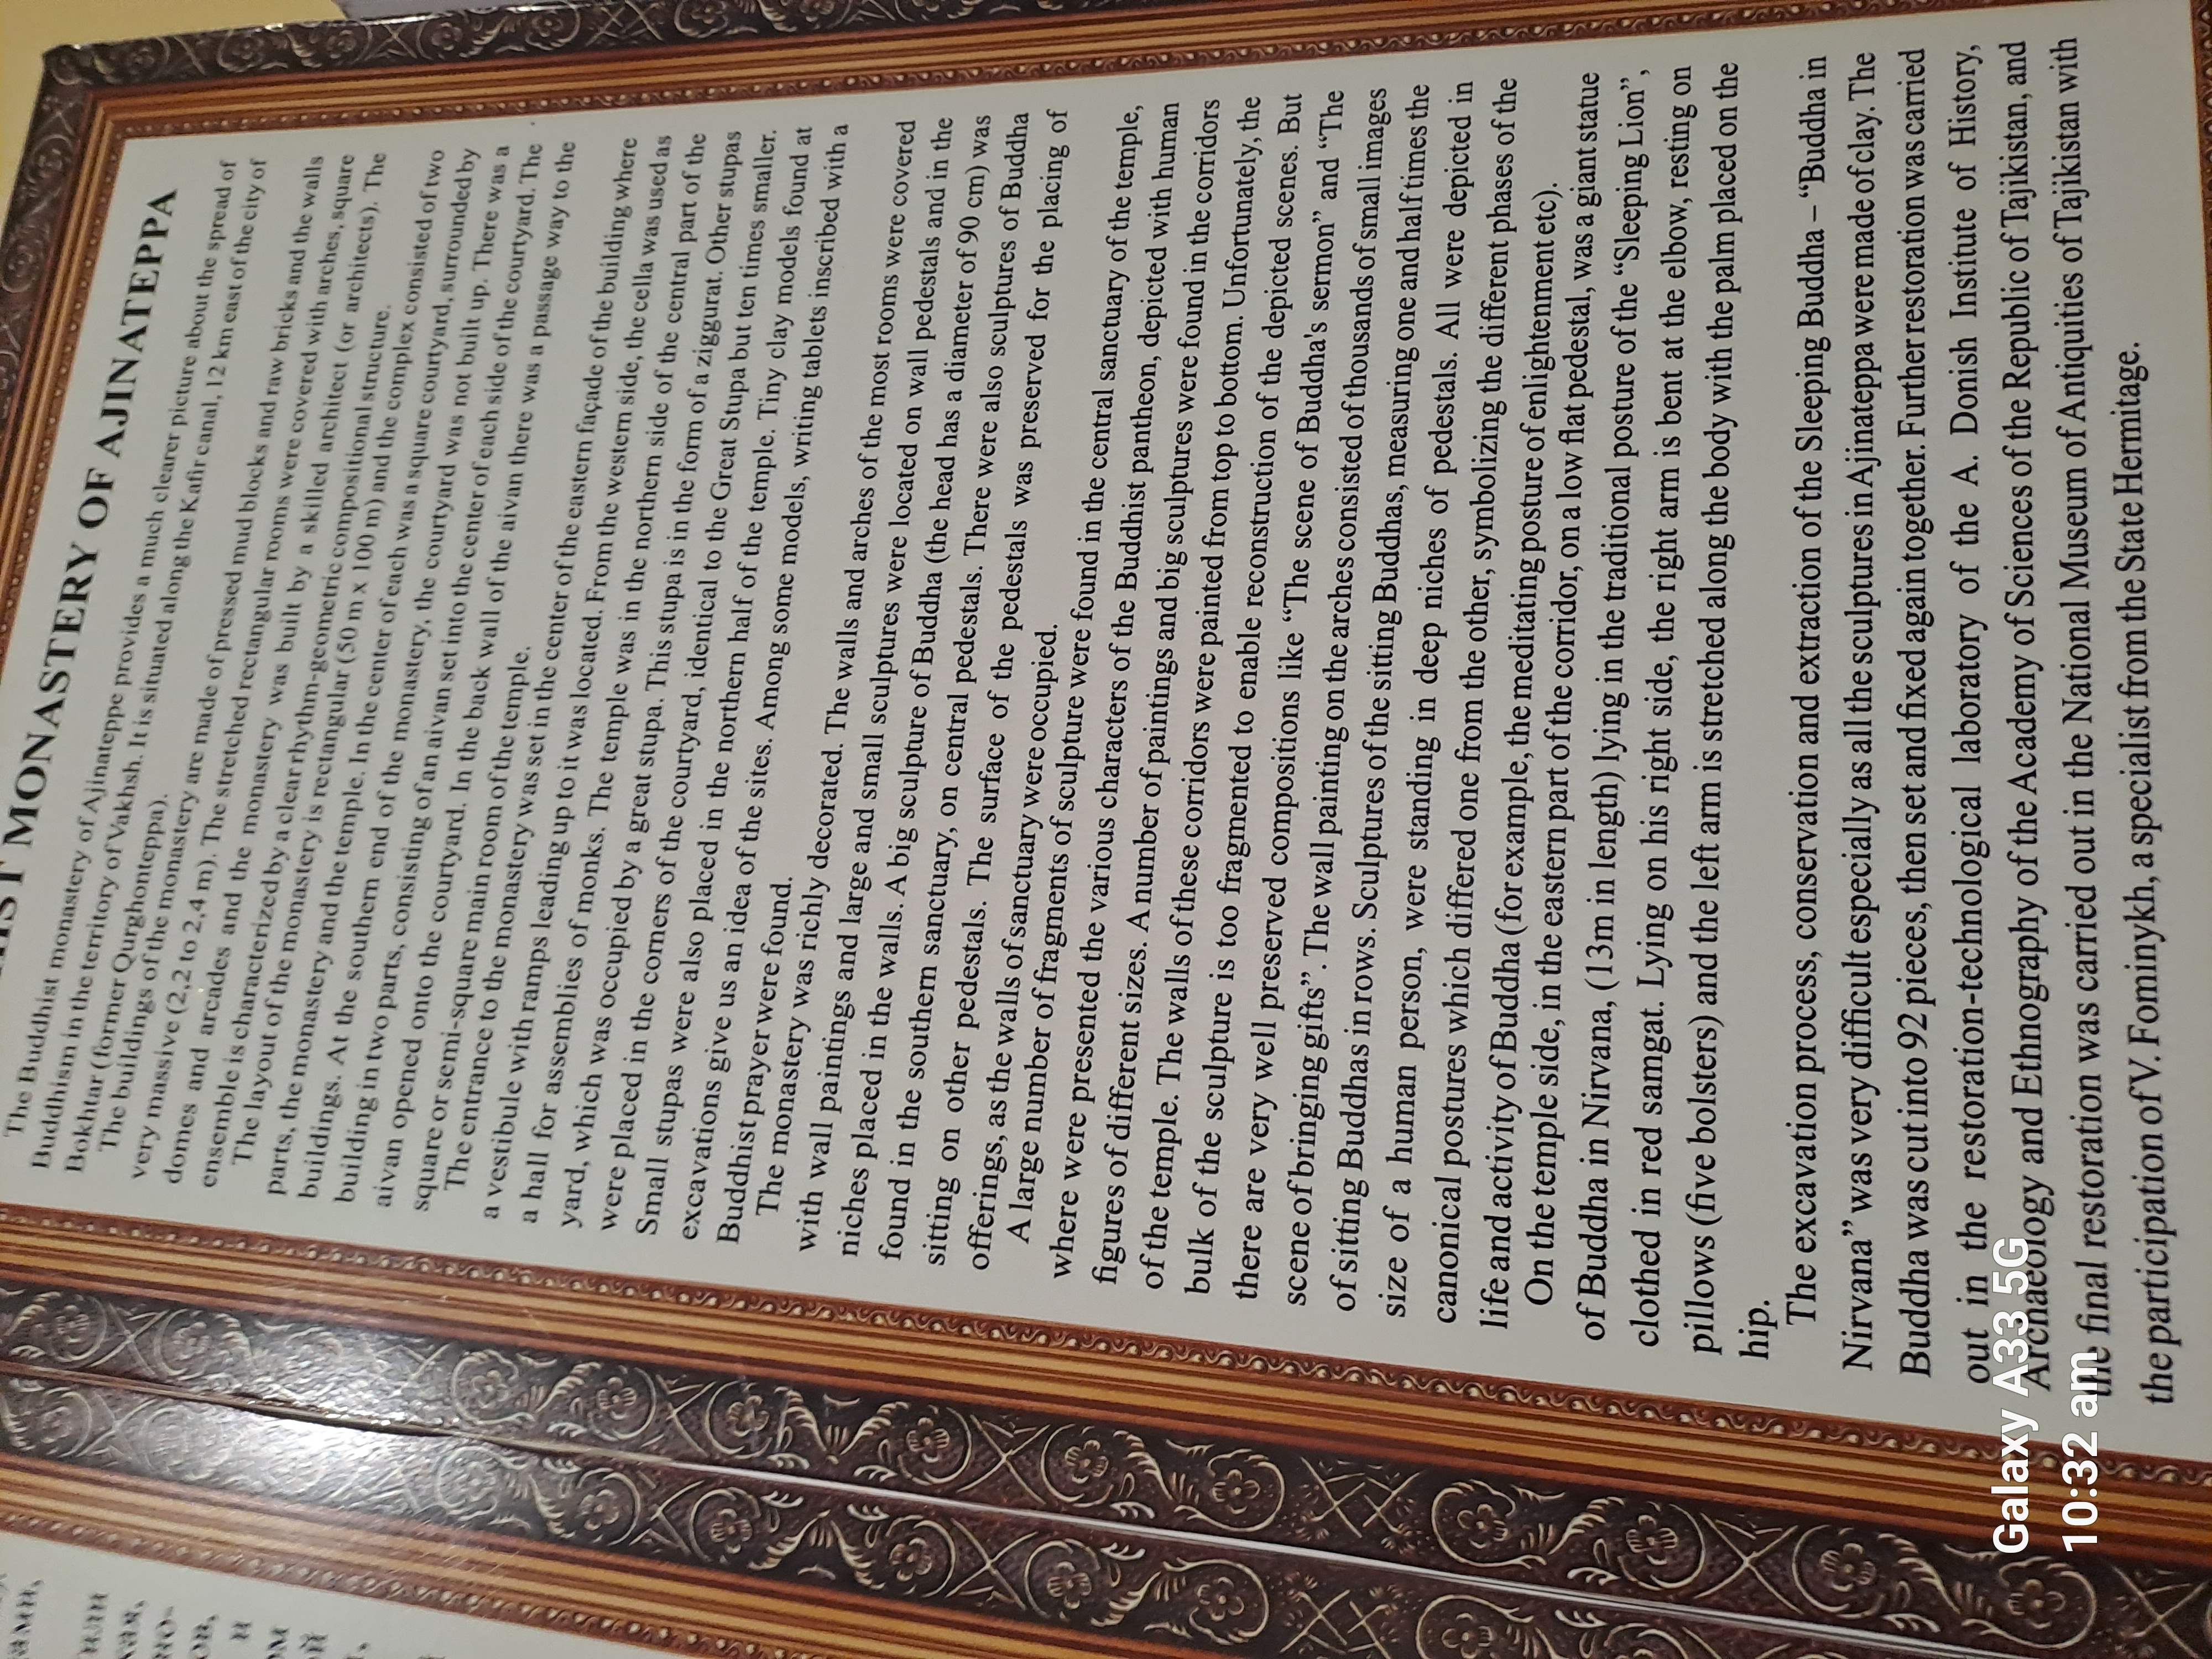 MONASTERY OF AJINATEPPA
The Buddhist monastery of Ajinateppe provides a much clearer picture about the spread of
Buddhism in the territory of Vakhsh. It is situated along the Kafir canal, 12 km east of the city of
Bokhtar (former Qurghonteppa).
The buildings of the monastery are made of pressed mud blocks and raw bricks and the walls
very massive (2,2 to 2,4 m). The stretched rectangular rooms were covered with arches, square
domes and arcades and the monastery was built by a skilled architect (or architects). The
ensemble is characterized by a clear rhythm-geometric compositional structure.
The layout of the monastery is rectangular (50 m x 100 m) and the complex consisted of two
parts, the monastery and the temple. In the center of each was a square courtyard, surrounded by
buildings. At the southern end of the monastery, the courtyard was not built up. There was a
building in two parts, consisting of an aivan set into the center of each side of the courtyard. The
aivan opened onto the courtyard. In the back wall of the aivan there was a passage way to the
square or semi-square main room of the temple.
The entrance to the monastery was set in the center of the eastern façade of the building where
a vestibule with ramps leading up to it was located. From the western side, the cella was used as
a hall for assemblies of monks. The temple was in the northern side of the central part of the
yard, which was occupied by a great stupa. This stupa is in the form of a ziggurat. Other stupas
were placed in the corners of the courtyard, identical to the Great Stupa but ten times smaller.
Small stupas were also placed in the northern half of the temple. Tiny clay models found at
excavations give us an idea of the sites. Among some models, writing tablets inscribed with a
Buddhist prayer were found.
The monastery was richly decorated. The walls and arches of the most rooms were covered
with wall paintings and large and small sculptures were located on wall pedestals and in the
niches placed in the walls. A big sculpture of Buddha (the head has a diameter of 90 cm) was
found in the southern sanctuary, on central pedestals. There were also sculptures of Buddha
sitting on other pedestals. The surface of the pedestals was preserved for the placing of
offerings, as the walls of sanctuary were occupied.
A large number of fragments of sculpture were found in the central sanctuary of the temple,
where were presented the various characters of the Buddhist pantheon, depicted with human
figures of different sizes. A number of paintings and big sculptures were found in the corridors
of the temple. The walls of these corridors were painted from top to bottom. Unfortunately, the
bulk of the sculpture is too fragmented to enable reconstruction of the depicted scenes. But
there are very well preserved compositions like “The scene of Buddha's sermon” and “The
scene of bringing gifts”. The wall painting on the arches consisted of thousands of small images
of sitting Buddhas in rows. Sculptures of the sitting Buddhas, measuring one and half times the
size of a human person, were standing in deep niches of pedestals. All were depicted in
canonical postures which differed one from the other, symbolizing the different phases of the
life and activity of Buddha (for example, the meditating posture of enlightenment etc).
On the temple side, in the eastern part of the corridor, on a low flat pedestal, was a giant statue
of Buddha in Nirvana, (13m in length) lying in the traditional posture of the “Sleeping Lion”,
clothed in red samgat. Lying on his right side, the right arm is bent at the elbow, resting on
pillows (five bolsters) and the left arm is stretched along the body with the palm placed on the
hip.
The excavation process, conservation and extraction of the Sleeping Buddha – “Buddha in
Nirvana” was very difficult especially as all the sculptures in Ajinateppa were made of clay. The
Buddha was cut into 92 pieces, then set and fixed again together. Further restoration was carried
out in the restoration-technological laboratory of the A. Donish Institute of History,
Archaeology and Ethnography of the Academy of Sciences of the Republic of Tajikistan, and
the final restoration was carried out in the National Museum of Antiquities of Tajikistan with
the participation of V. Fominykh, a specialist from the State Hermitage.
Galaxy A33 5G
10:32 am